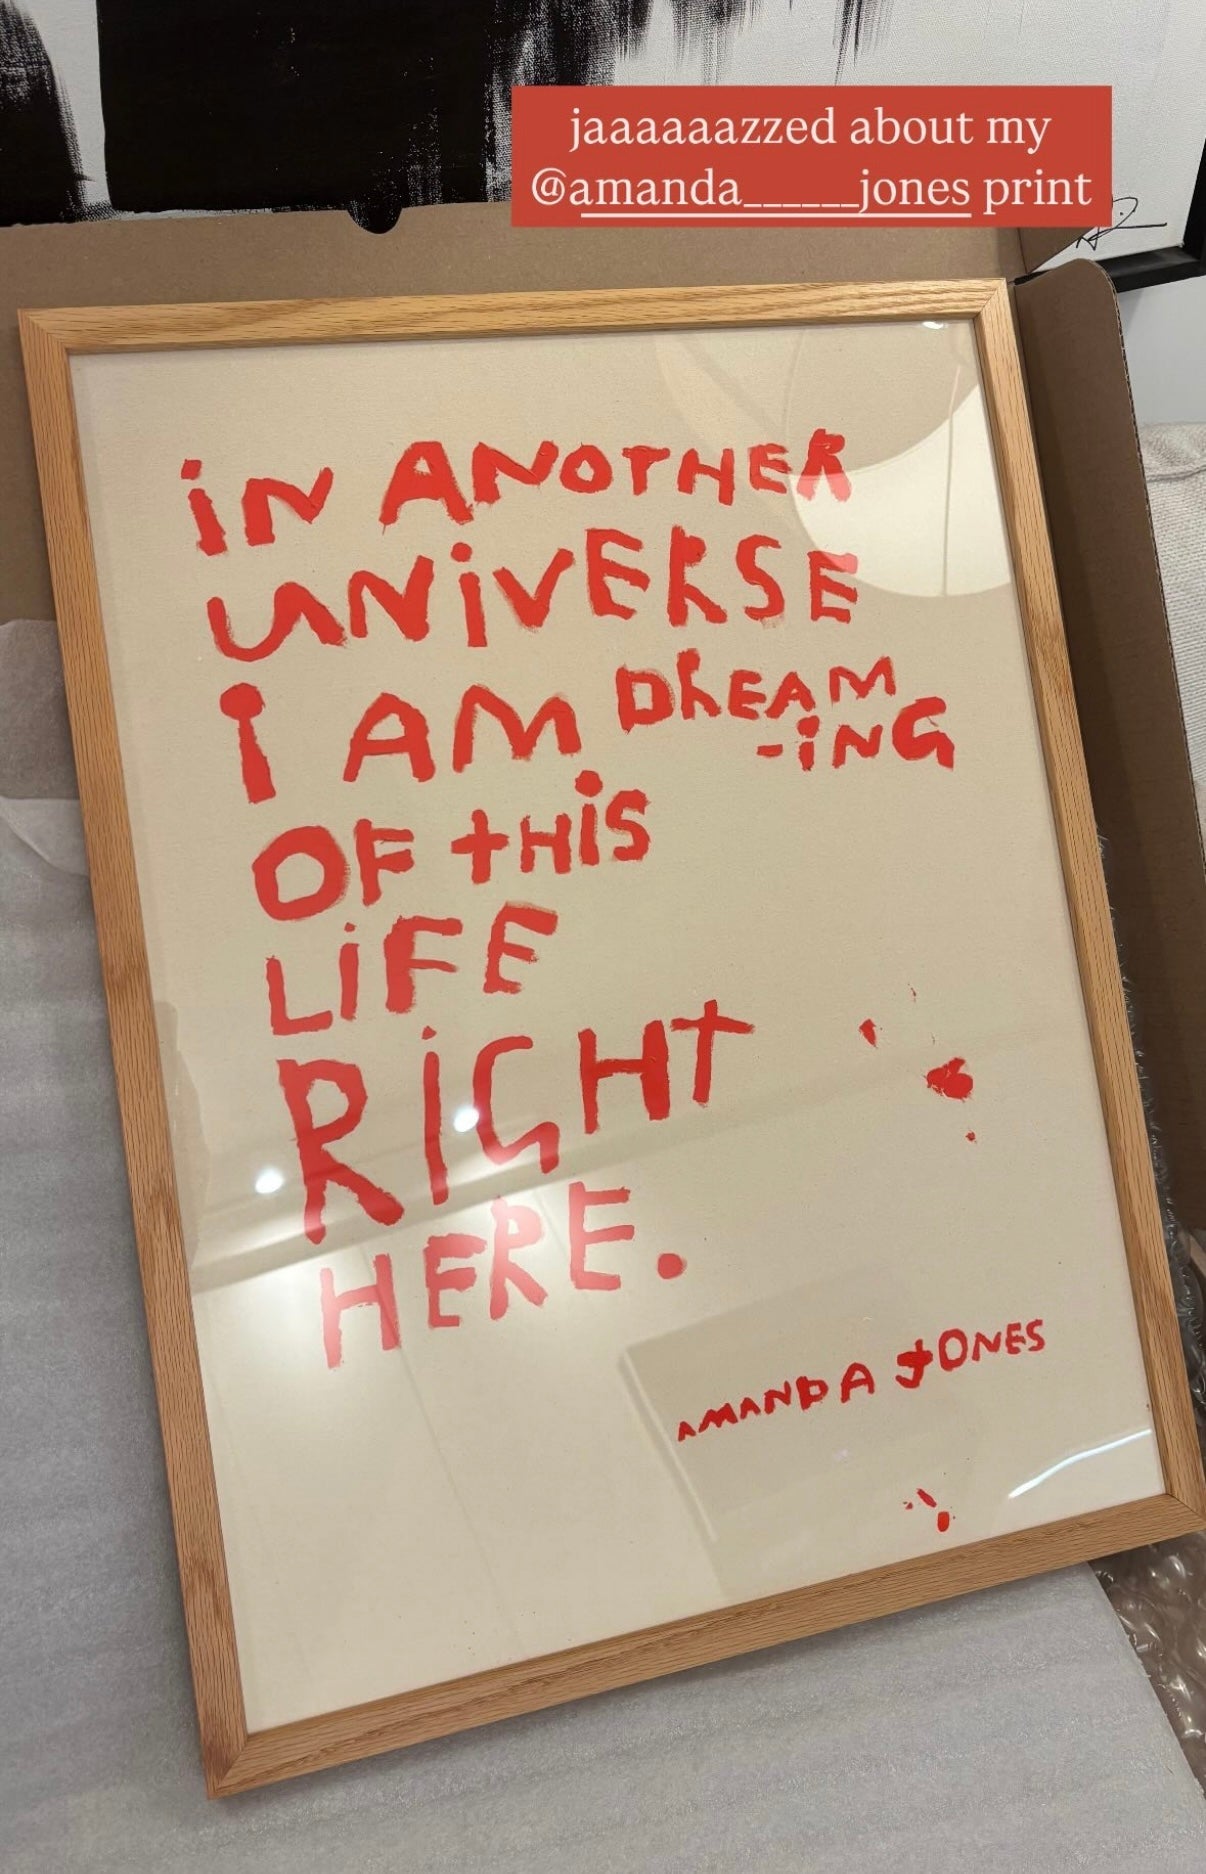 jaaaaaazzed about my
@amanda______jones print
iN ANOTHER
UNiVERSE
I AM DREAM
-iNG
OF tHiS
LiFE
RiGHT
HERE.
AMANDA JONES